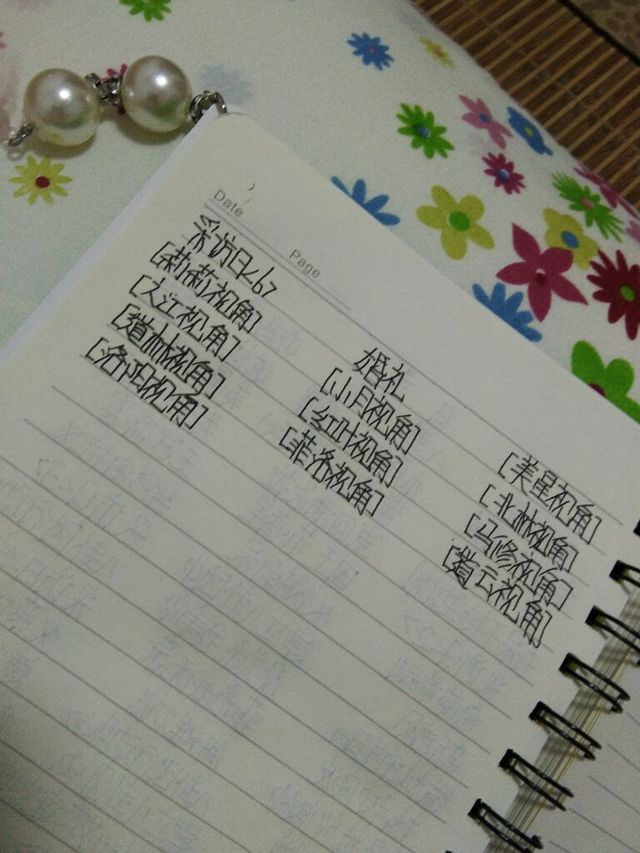 Date
Page
采访日<6>
[莉莉视角]
[入江视角]
[道林视角]
[洛阳视角]
婚礼
[小月视角]
[红叶视角]
[菲洛视角]
[美星视角]
[北林视角]
[马修视角]
[道云视角]